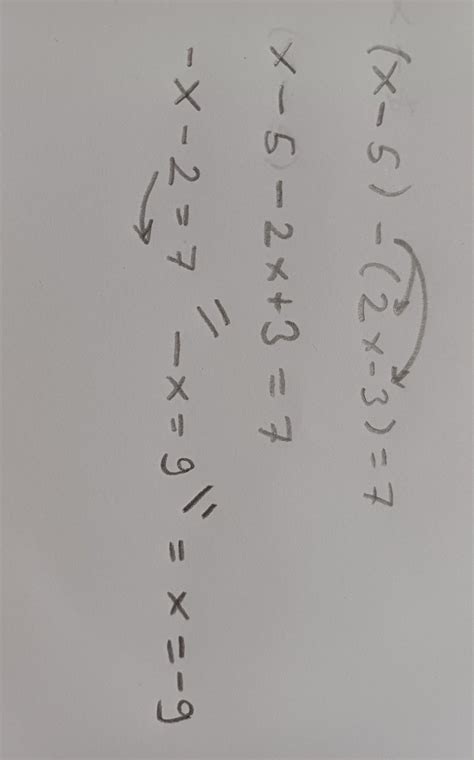 (x-5)-(2x-3)=7
x-5)-2x+3=7
-x-2=7 = -x=9 // = x=-9